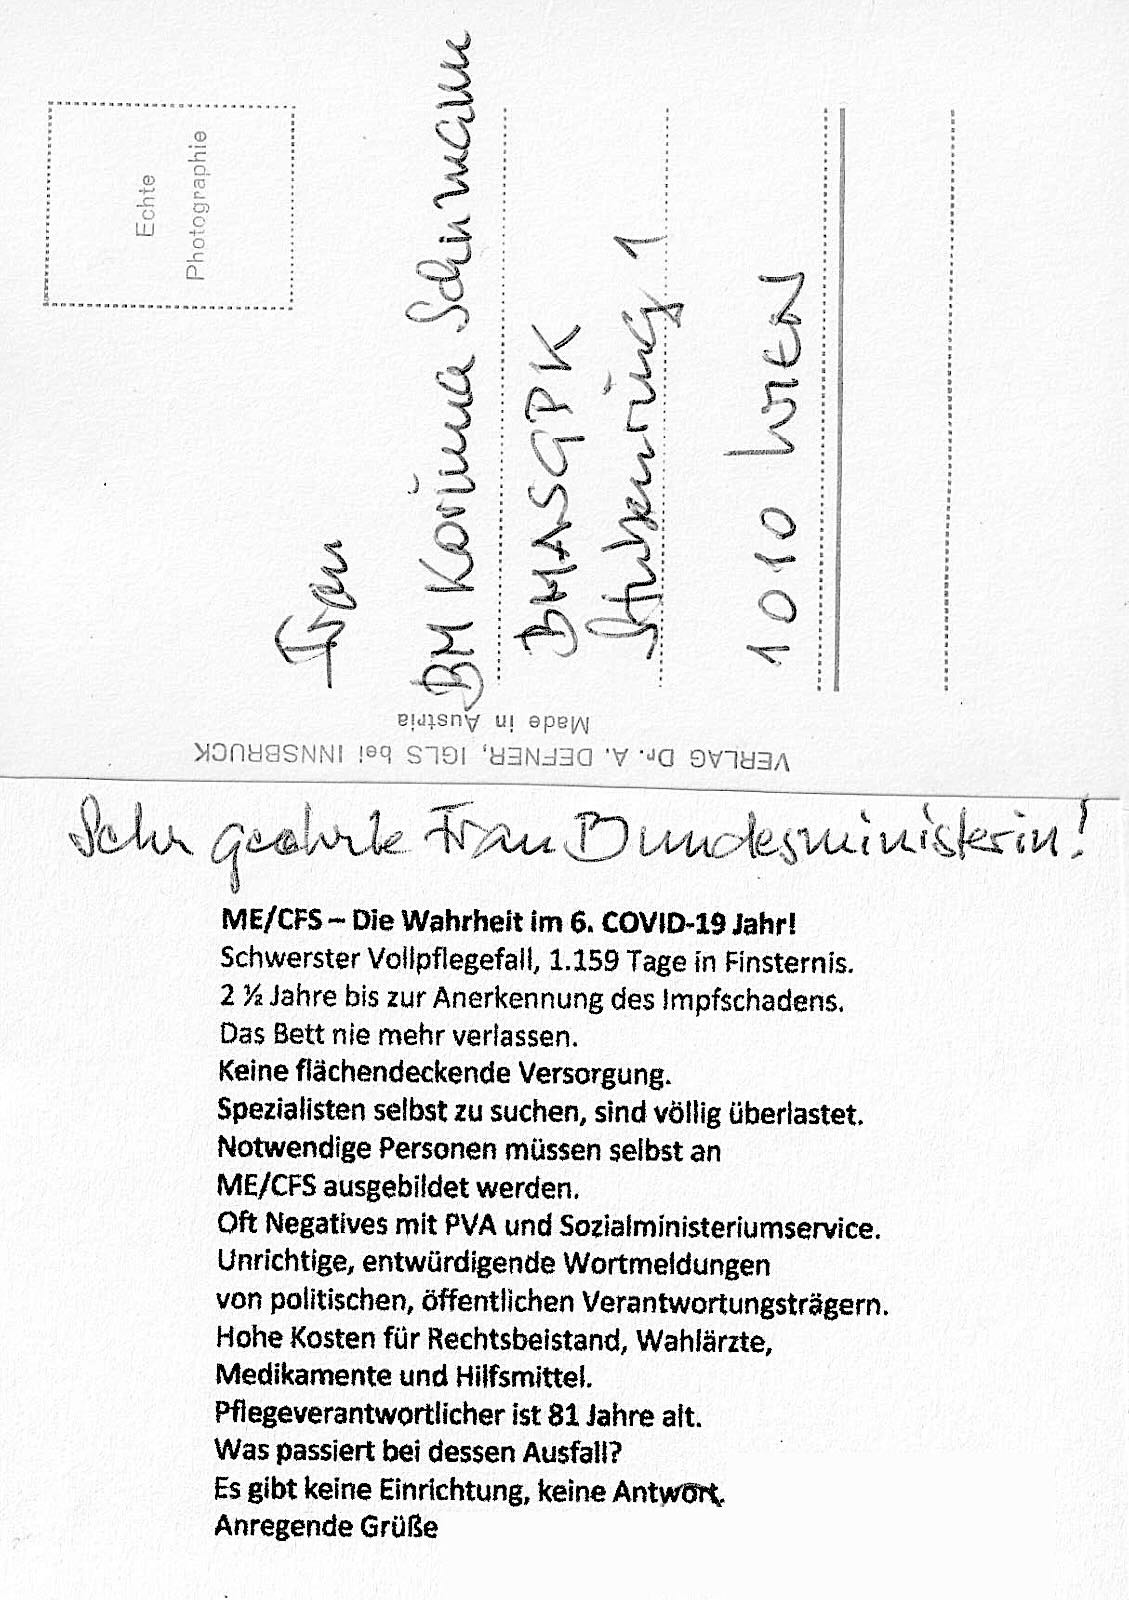 Echte
Photographie
Frau
BM Korinna Schumann
BMASGPK
Stubenring 1
1010 WIEN
Made in Austria
VERLAG Dr. A. DEFNER, IGLS bei INNSBRUCK
Sehr geehrte Frau Bundesministerin!
ME/CFS – Die Wahrheit im 6. COVID-19 Jahr!
Schwerster Vollpflegefall, 1.159 Tage in Finsternis.
2 ½ Jahre bis zur Anerkennung des Impfschadens.
Das Bett nie mehr verlassen.
Keine flächendeckende Versorgung.
Spezialisten selbst zu suchen, sind völlig überlastet.
Notwendige Personen müssen selbst an
ME/CFS ausgebildet werden.
Oft Negatives mit PVA und Sozialministeriumservice.
Unrichtige, entwürdigende Wortmeldungen
von politischen, öffentlichen Verantwortungsträgern.
Hohe Kosten für Rechtsbeistand, Wahlärzte,
Medikamente und Hilfsmittel.
Pflegeverantwortlicher ist 81 Jahre alt.
Was passiert bei dessen Ausfall?
Es gibt keine Einrichtung, keine Antwort.
Anregende Grüße